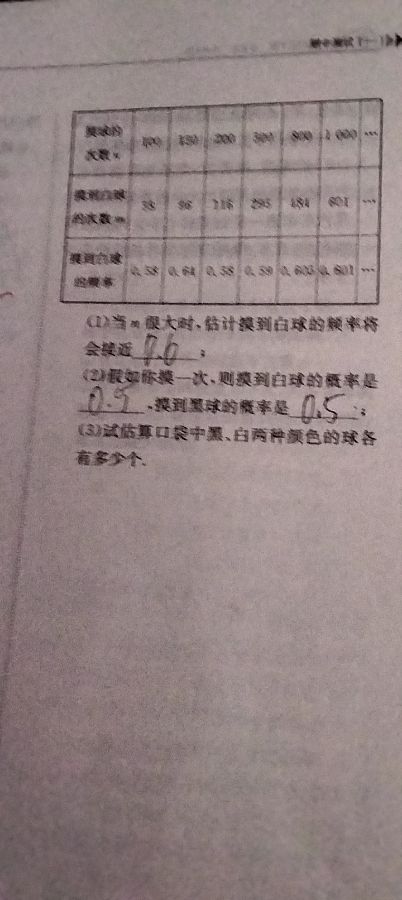 期中测试(一)
摸球的次数n 100 150 200 500 800 1 000 …
摸到白球的次数m 58 96 116 295 484 601 …
摸到白球的概率 0.58 0.64 0.58 0.59 0.605 0.601 …
(1)当n很大时,估计摸到白球的频率将
会接近 0.6 ;
(2)假如你摸一次,则摸到白球的概率是
0.5 ,摸到黑球的概率是 0.5 ;
(3)试估算口袋中黑、白两种颜色的球各
有多少个.